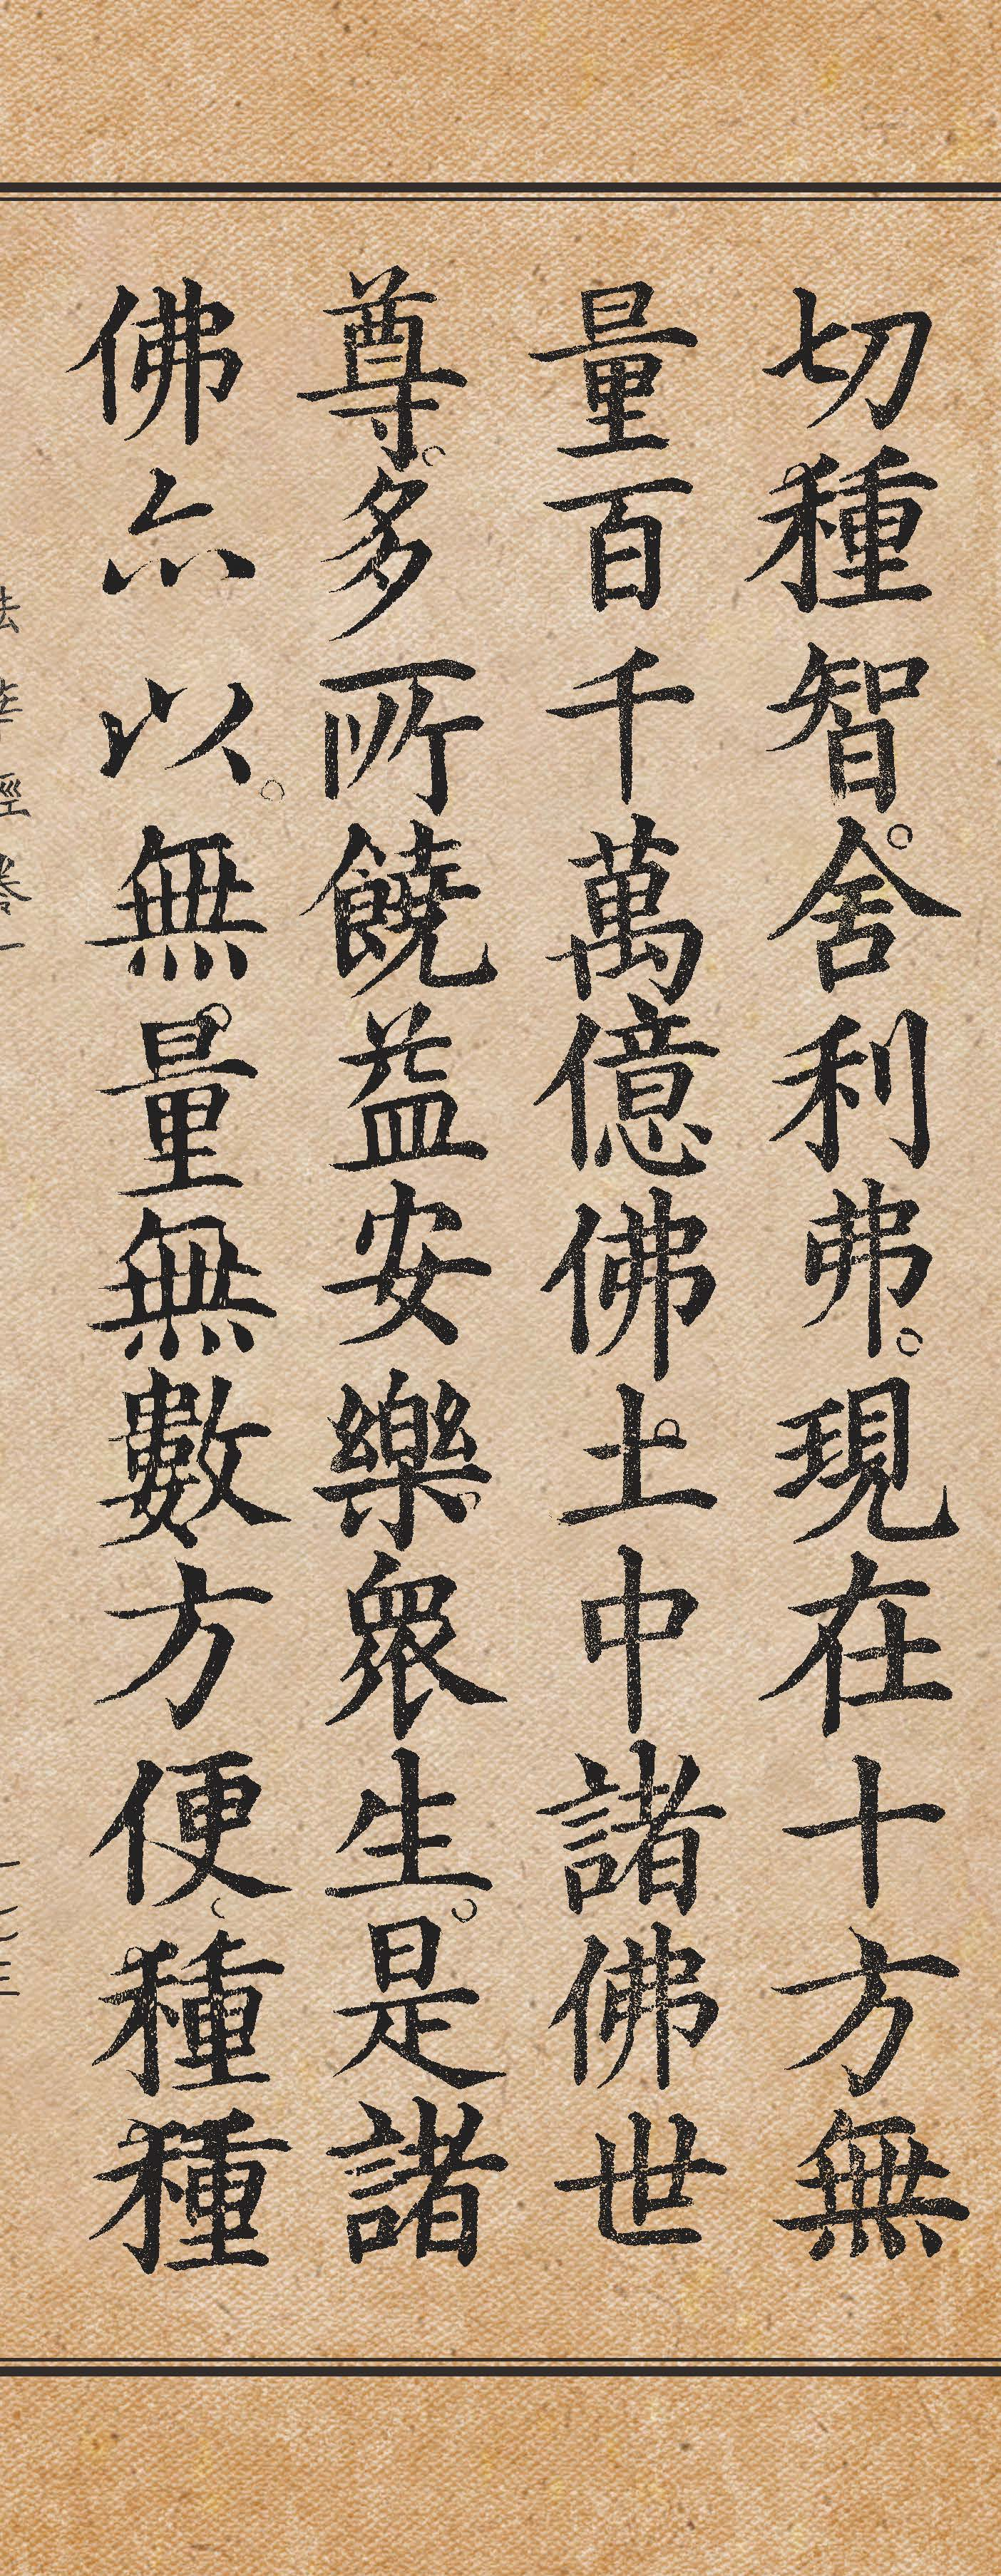 切種智。舍利弗。現在十方無
量百千萬億佛土。中諸佛世
尊。多所饒益安樂眾生。是諸
佛亦以。無量。無數方便。種種